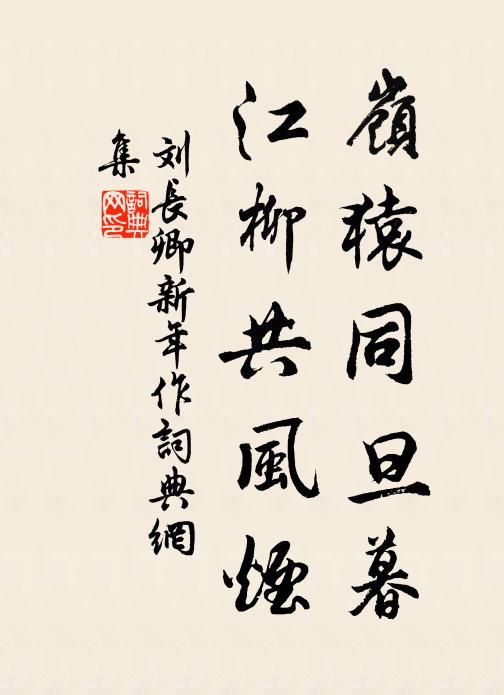 嶺猿同旦暮
江柳共風煙
刘長卿新年作詞典網
集
詞典網印